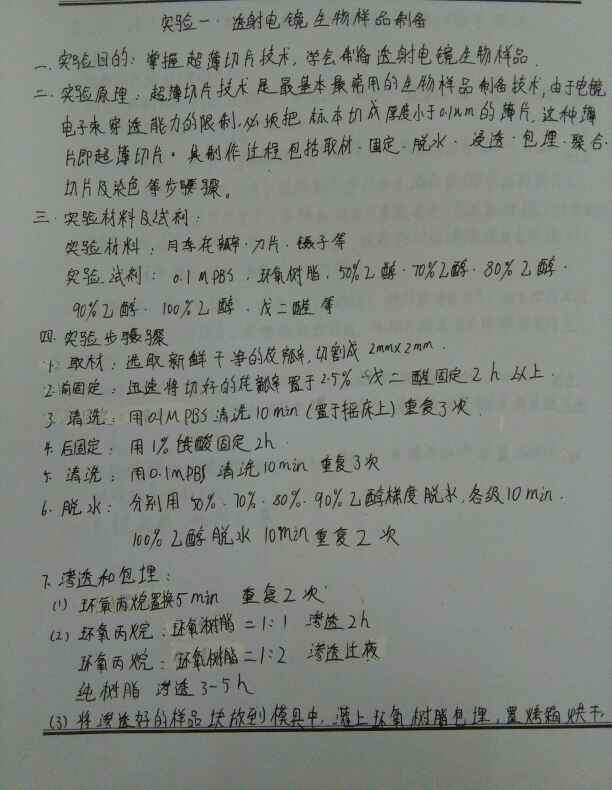 实验一. 透射电镜生物样品制备
一. 实验目的: 掌握超薄切片技术, 学会制备透射电镜生物样品.
二. 实验原理: 超薄切片技术是最基本最常用的生物样品制备技术, 由于电镜
电子束穿透能力的限制, 必须把标本切成厚度小于0.1um的薄片, 这种薄
片即超薄切片. 其制作过程包括取材. 固定. 脱水. 浸透. 包埋. 聚合.
切片及染色等步骤。
三. 实验材料及试剂:
实验材料: 月季花瓣. 刀片. 镊子等
实验试剂: 0.1MPBS. 环氧树脂. 50%乙醇. 70%乙醇. 80%乙醇.
90%乙醇. 100%乙醇. 戊二醛等
四. 实验步骤
1. 取材: 选取新鲜干净的花瓣, 切割成 2mm×2mm.
2. 前固定: 迅速将切好的花瓣置于2.5%戊二醛固定2h以上.
3. 清洗: 用0.1MPBS清洗10min (置于摇床上) 重复3次.
4. 后固定: 用1%锇酸固定2h.
5. 清洗: 用0.1mPBS 清洗10min 重复3次
6. 脱水: 分别用50%. 70%. 80%. 90%乙醇梯度脱水, 各级10min.
100%乙醇脱水 10min 重复2次
7. 渗透和包埋:
(1) 环氧丙烷置换5min 重复2次
(2) 环氧丙烷: 环氧树脂=1:1 渗透2h
环氧丙烷: 环氧树脂=1:2 渗透过夜
纯树脂 渗透3-5h
(3) 将渗透好的样品块放到模具中, 灌上环氧树脂包埋, 置烤箱烘干,